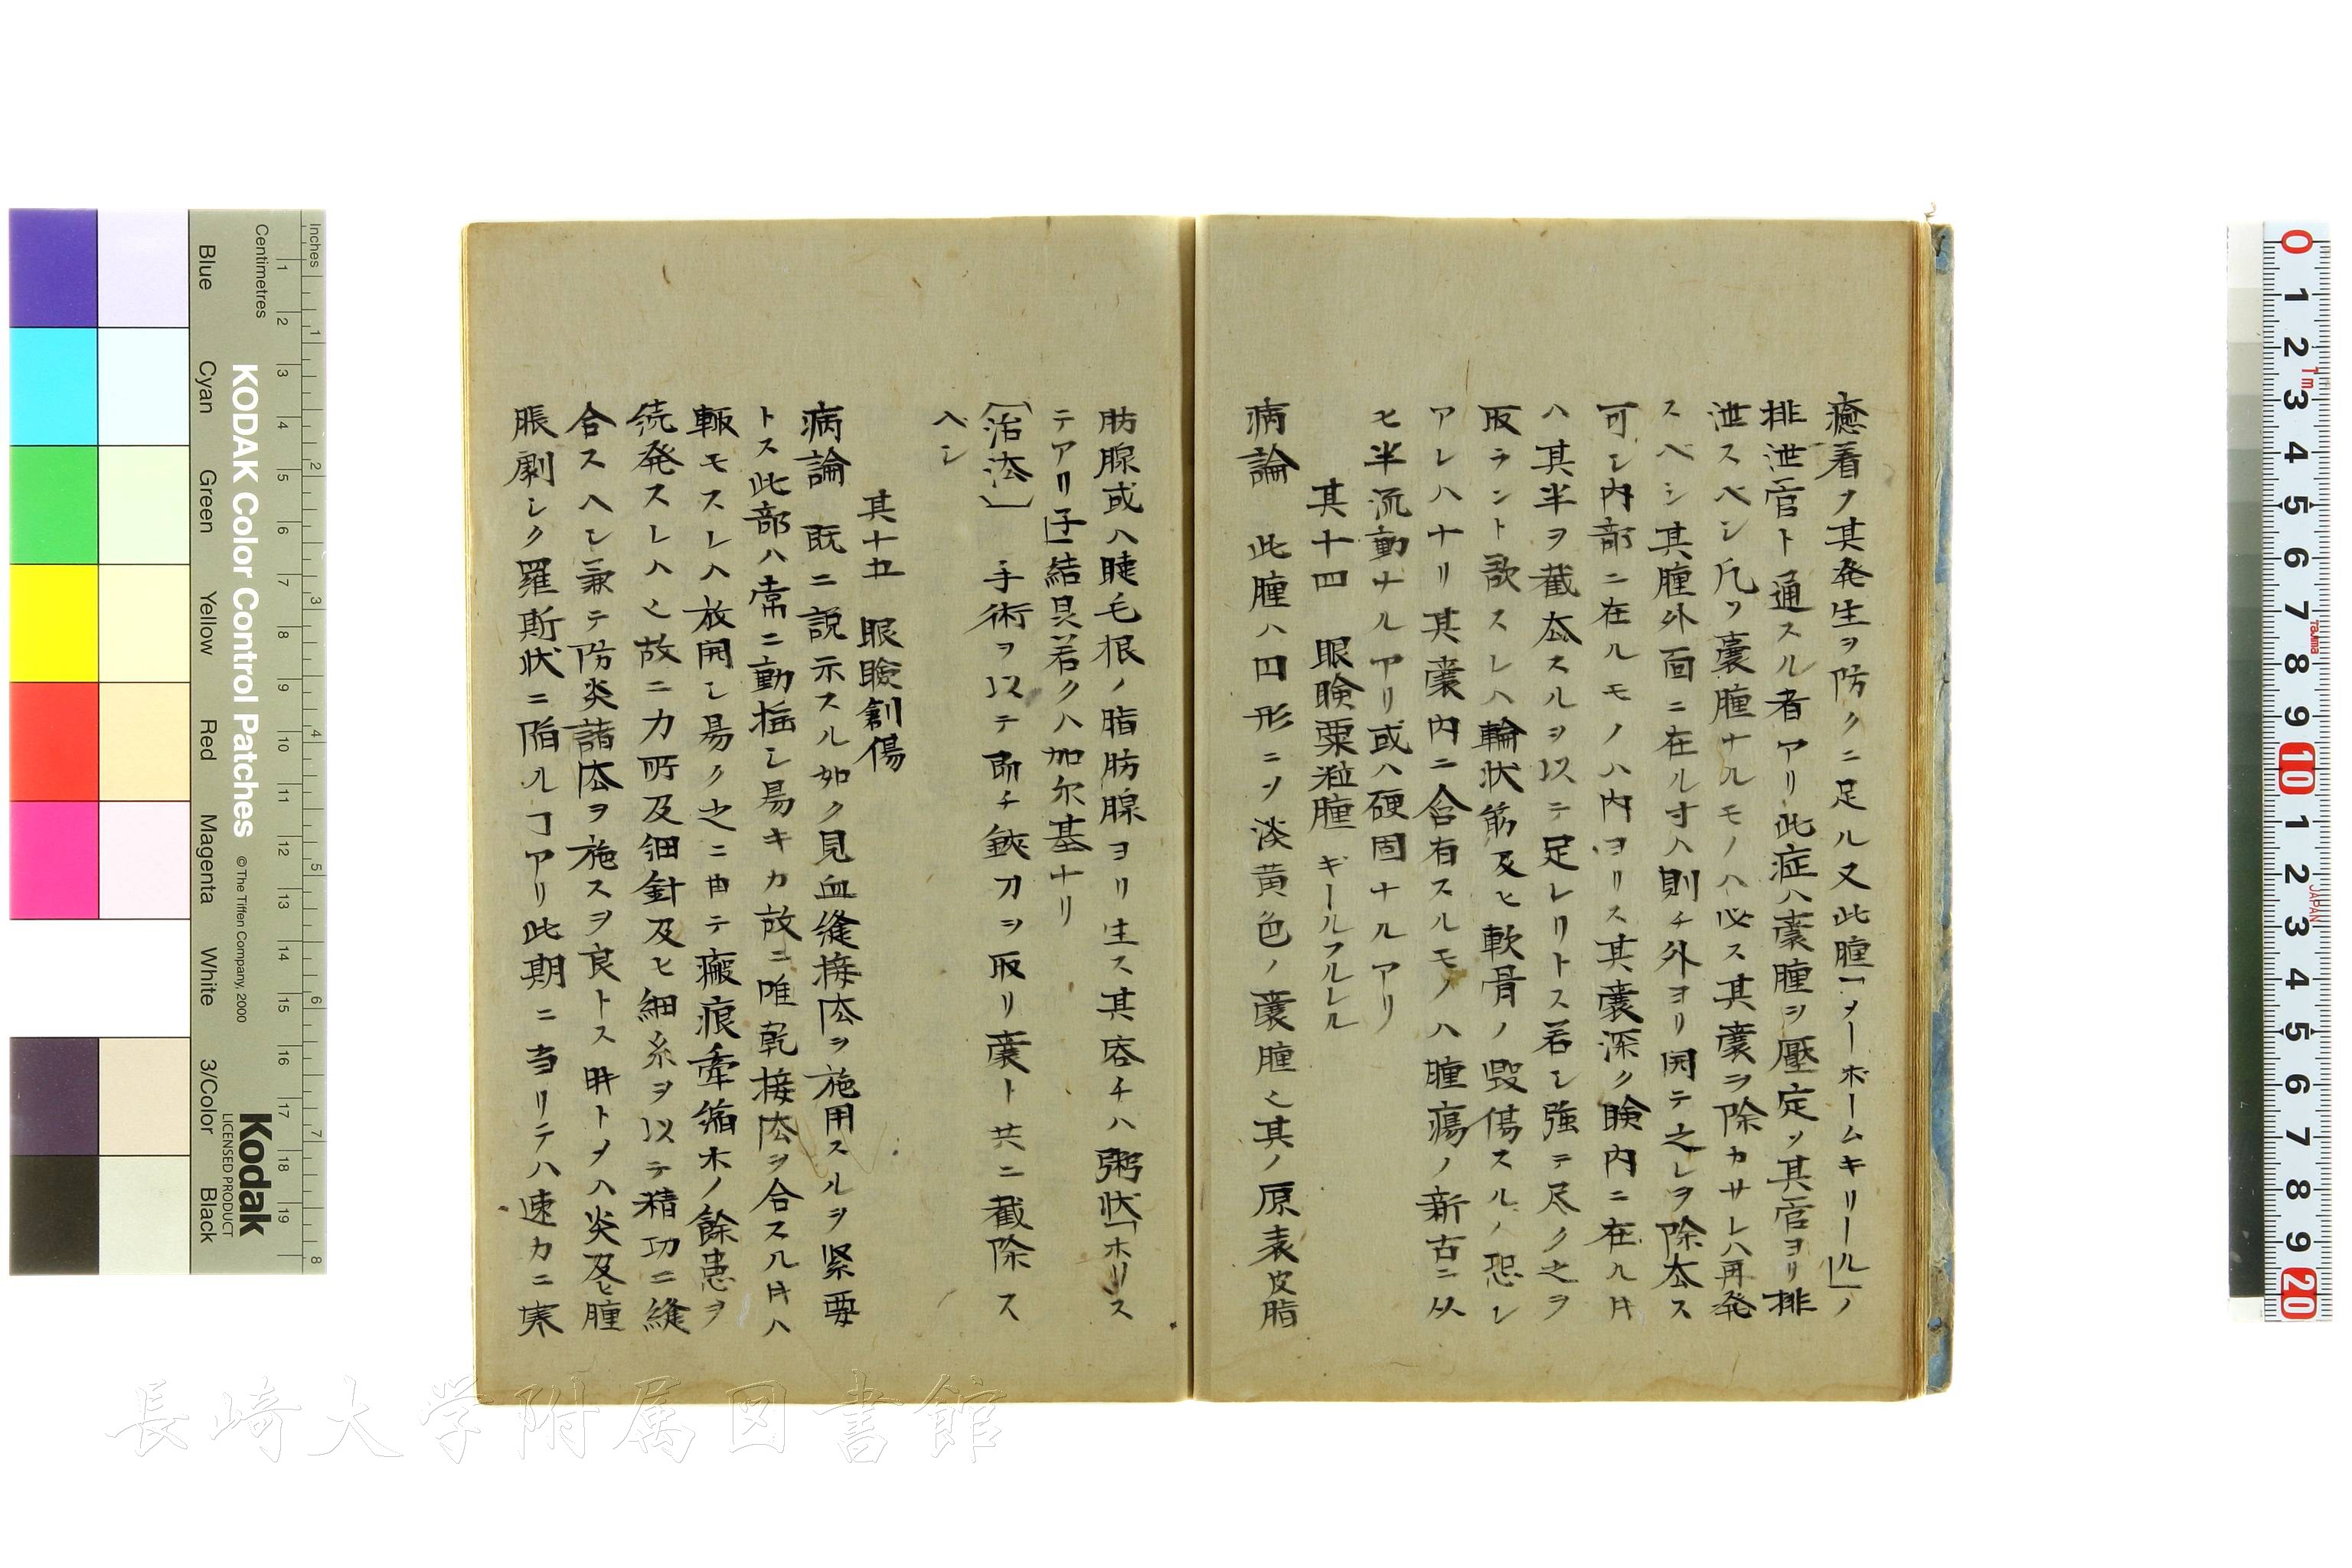 癒着ノ其発生ヲ防クニ足ル又此腫「メーボームキリール」ノ
排泄官ト通スル者アリ此症ハ嚢腫ヲ壓定ソ其官ヨリ排
泄スベシ凡ソ嚢腫ナルモノハ必ス其嚢ヲ除カサレハ再発
スベシ其腫外面ニ在ル寸ハ則チ外ヨリ開テ之レヲ除厺ス
可シ内部ニ在ルモノハ内ヨリス其嚢深ク瞼内ニ在ル㐧ハ
ハ其半ヲ截厺スルヲ以テ足レリトス若シ強テ尽ク之ヲ
取ラント欲スレハ輪状筋及ヒ軟骨ノ毀傷スルノ恐レ
アレハナリ其嚢内ニ含有スルモノハ腫瘍ノ新古ニ从
ヒ半流動ナルアリ或ハ硬固ナルアリ
其十四 眼瞼粟粒腫 ギールフルレル
病論 此腫ハ円形ニソ淡黄色ノ嚢腫也其ノ原表皮脂
肪腺或ハ睫毛根ノ脂肪腺ヨリ生ス其容チハ粥状「ホリス
テアリ子」結具若クハ加尓基ナリ
〔治法〕 手術ヲ以テ即チ鋏刀ヲ取リ嚢ト共ニ截除ス
ヘシ
其十五 眼瞼創傷
病論 既ニ説示スル如ク見血縫接法ヲ施用スルヲ緊要
トス此部ハ常ニ動揺シ易キカ故ニ唯乾接法ヲ合スルハ
輙モスレハ放開シ易ク之ニ由テ瘢痕牽縮木ノ餘患ヲ
続発スレハ也故ニ力所及細針及ヒ細糸ヲ以テ精功ニ縫
合スヘシ兼テ防炎諸法ヲ施スヲ良トス時トメハ炎及ヒ腫
脹劇シク羅斯状ニ陥ルコアリ此期ニ当リテハ速カニ
Centimetres
Inches
Blue
Cyan
Green
Yellow
Red
Magenta
White
3/Color
Black
KODAK Color Control Patches
© The Tiffen Company, 2000
Kodak
LICENSED PRODUCT
長崎大学附属図書館